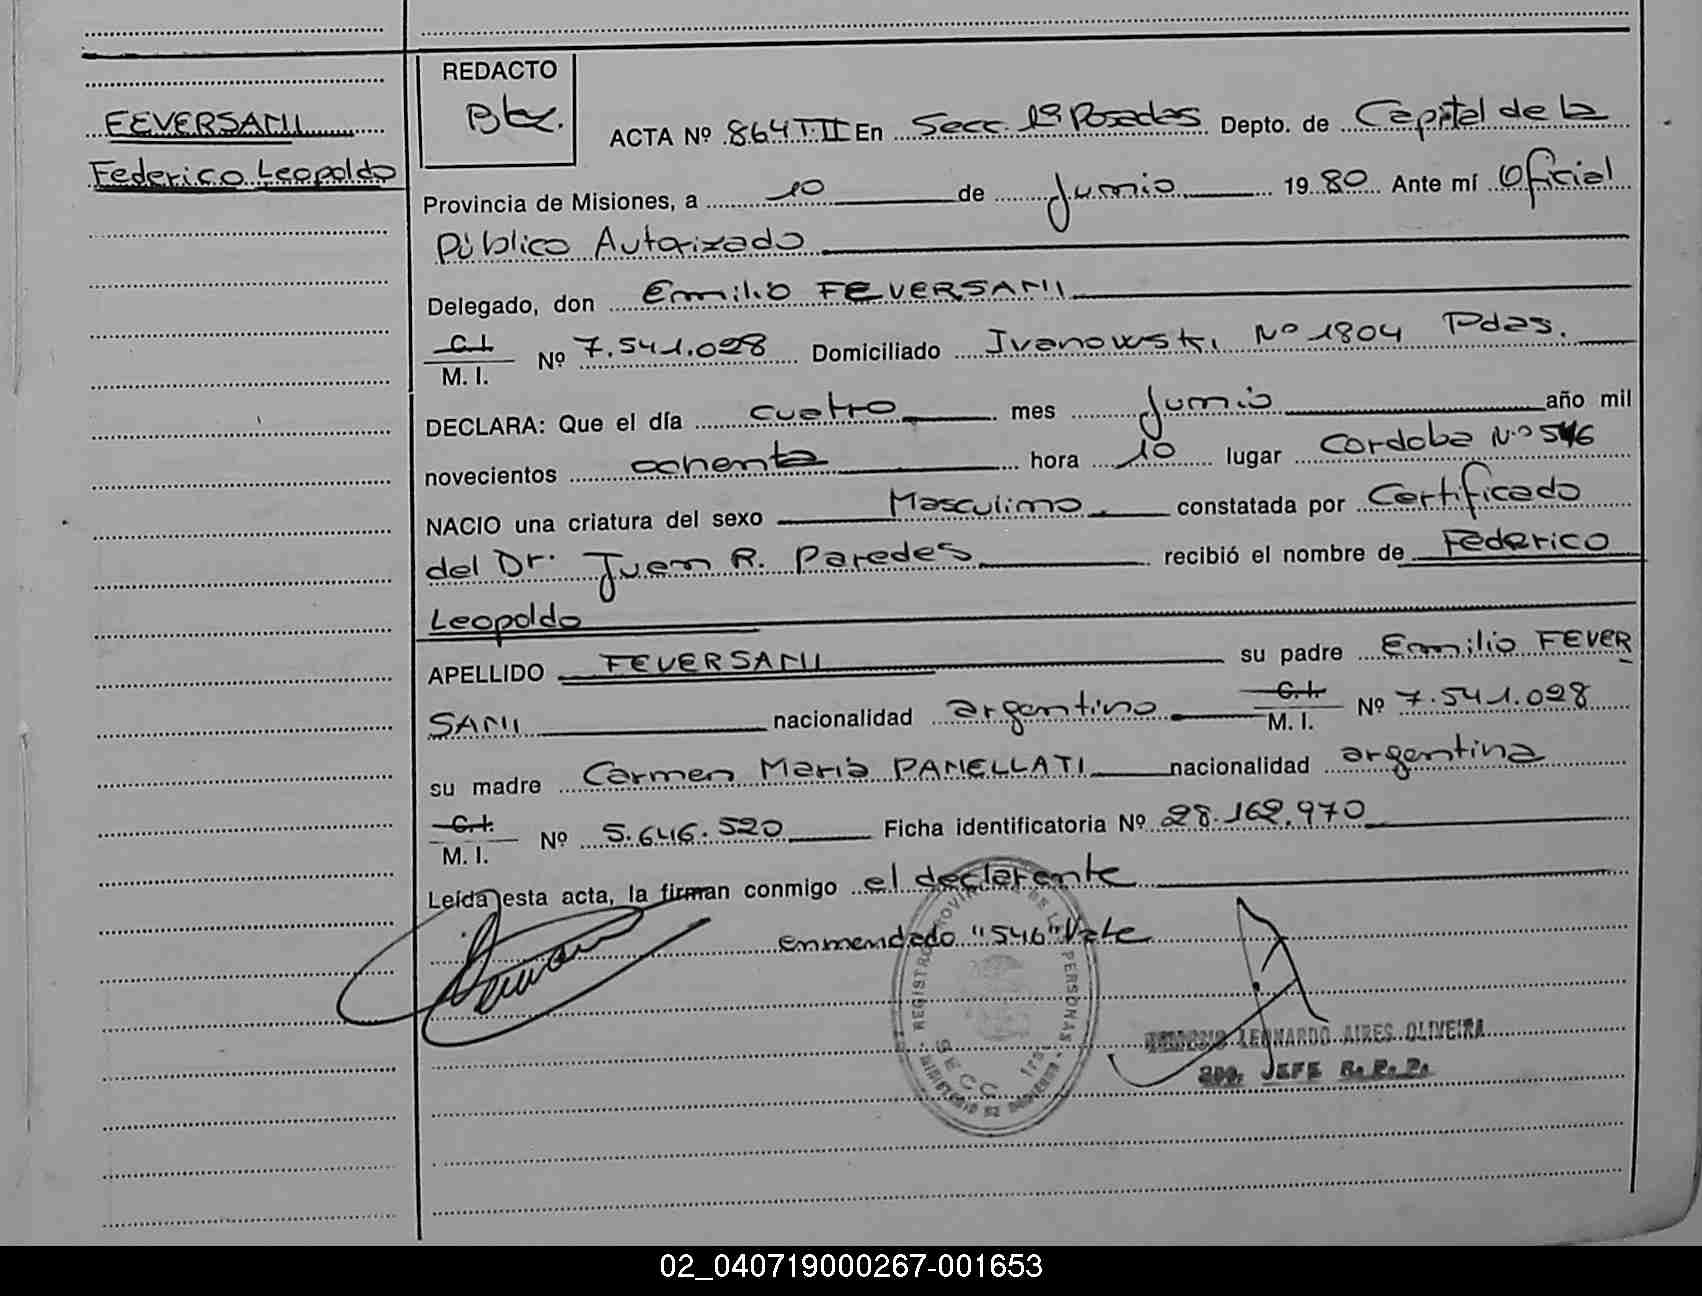 FEVERSANI
Federico Leopoldo
REDACTO
ACTA Nº 864 T II En Secc. 1ª Posadas Depto. de Capital de la
Provincia de Misiones, a 10 de Junio 1980 Ante mí Oficial
Público Autorizado
Delegado, don Emilio FEVERSANI
C.I.
M. I. Nº 7.541.028 Domiciliado Ivanowski Nº 1804 Pdas.
DECLARA: Que el día cuatro mes Junio año mil
novecientos ochenta hora 10 lugar Cordoba Nº 546
NACIO una criatura del sexo Masculino constatada por Certificado
del Dr. Juan R. Paredes recibió el nombre de Federico
Leopoldo
APELLIDO FEVERSANI su padre Emilio FEVER
SANI nacionalidad argentino C.I. M. I. Nº 7.541.028
su madre Carmen Maria PANELLATI nacionalidad argentina
C.I.
M. I. Nº 5.646.520 Ficha identificatoria Nº 28.162.970
Leída esta acta, la firman conmigo el declarante
enmendado "546" Vale
REGISTRO PROVINCIAL DE LAS PERSONAS
SECC. 1ª
MINISTERIO DE GOBIERNO
LEONARDO AIRES OLIVEIRA
2DO. JEFE R. P. P.
02_040719000267-001653